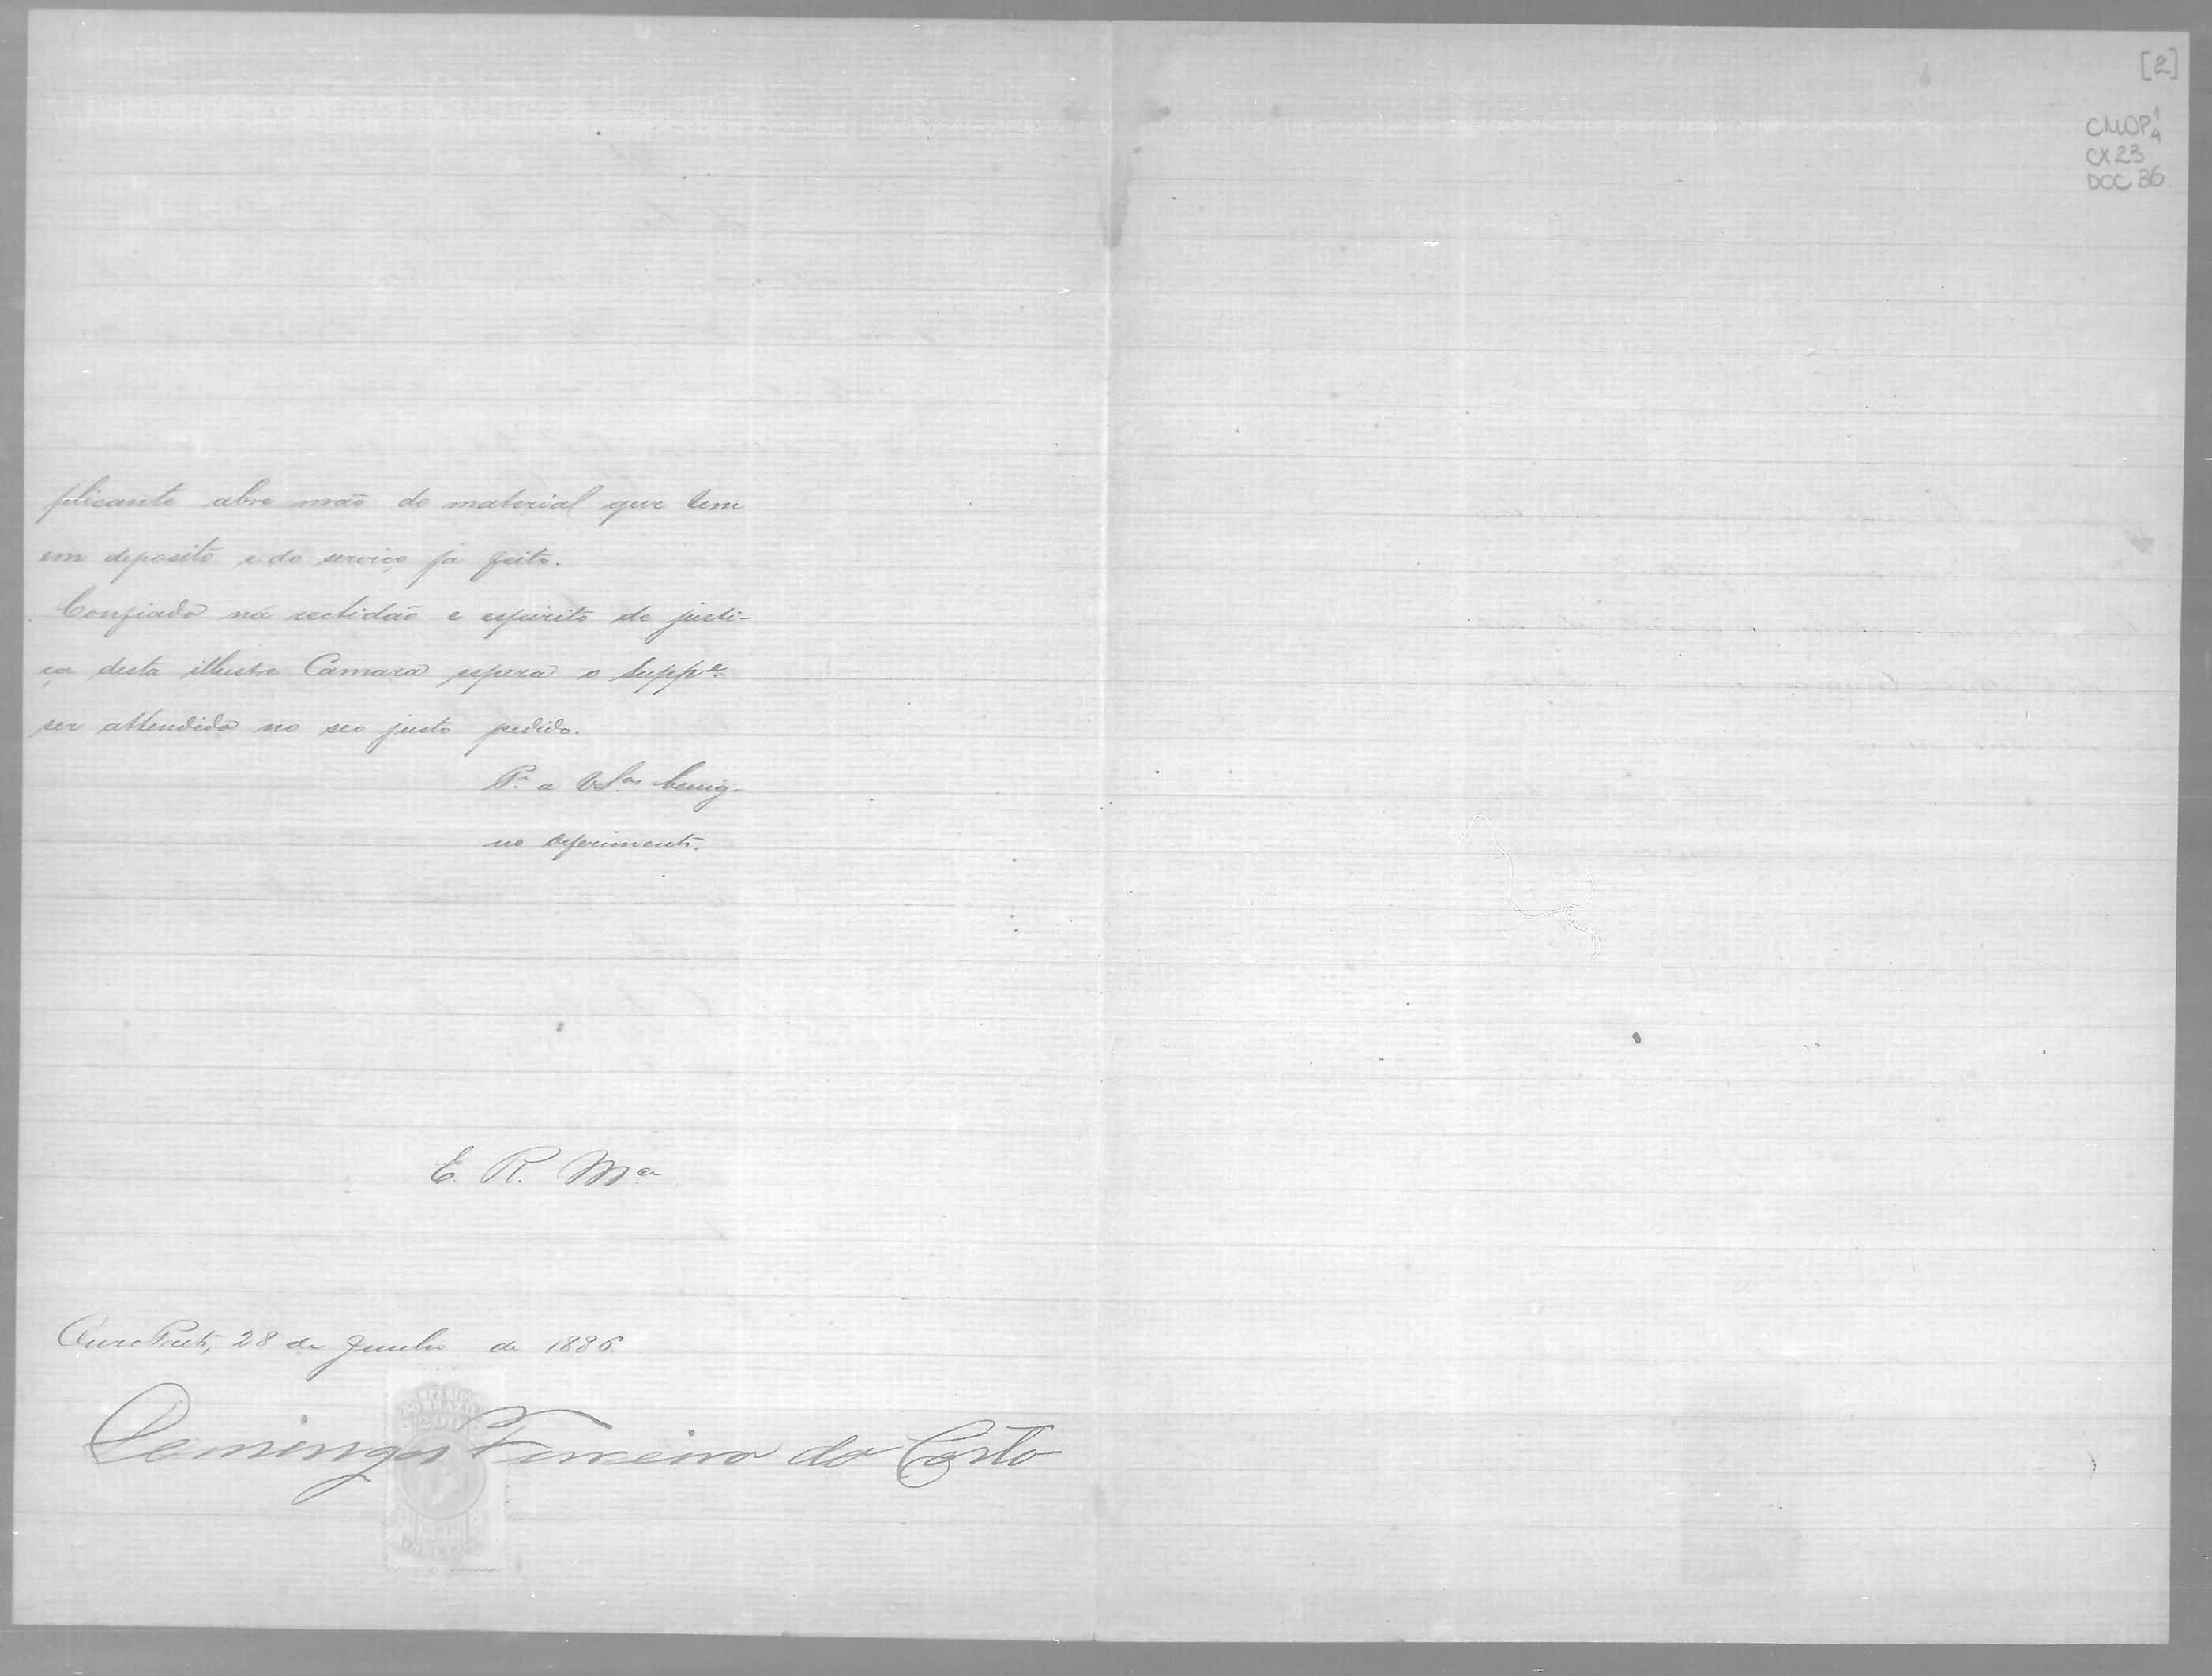 [2]
CMOP 1/4
CX 23
DOC 36
plicante abre mão do material que tem
em deposito e do serviço ja feito.
Confiado na rectidão e espirito de justi-
ça desta illustre Camara espera o Suppe.
ser attendido no seo justo pedido.
P. a VSas benig-
no deferimento.
E. R. Mce
Ouro Preto, 28 de Junho de 1886
Domingos Ferreira do Couto
IMPERIO
200